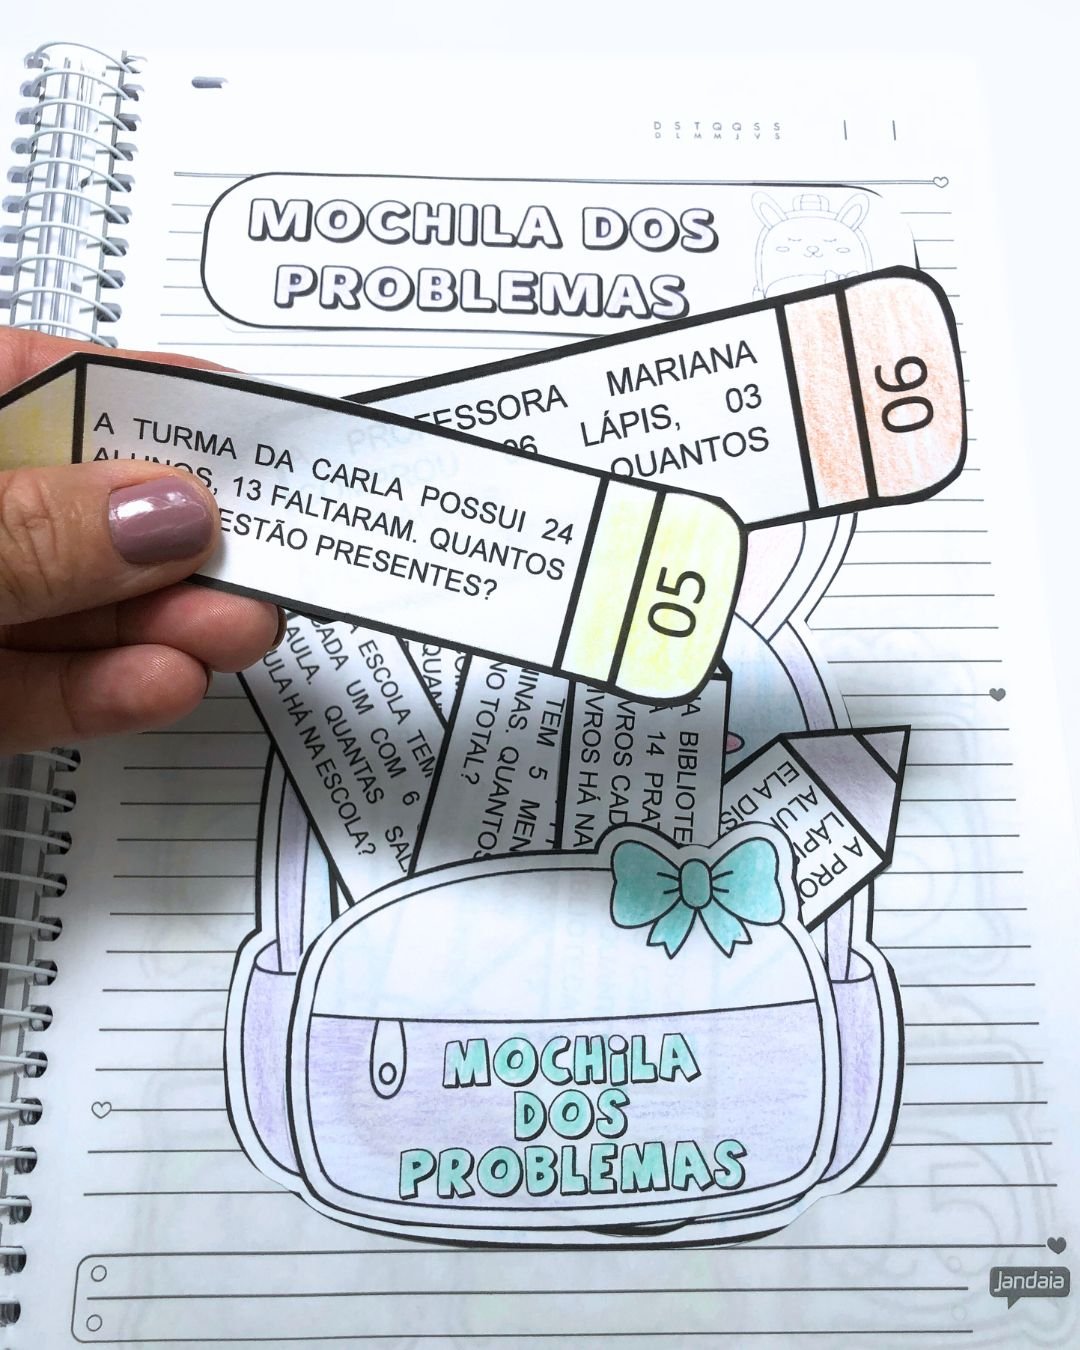 D S T Q Q S S
D L M M J V S
MOCHILA DOS
PROBLEMAS
MARIANA
06 LÁPIS, 03
QUANTOS
06
A TURMA DA CARLA POSSUI 24
ALUNOS, 13 FALTARAM. QUANTOS
ESTÃO PRESENTES?
05
A ESCOLA TEM
CADA UM COM 6 SAL
AULA. QUANTAS
AULA HÁ NA ESCOLA?
TEM 5 MEN
NINAS. QUANTOS
NO TOTAL?
A BIBLIOTE
A 14 PRAT
IVROS CAD
IVROS HÁ NA
A PRO
LÁPI
ALU
ELA DIS
MOCHiLA
DOS
PROBLEMAS
Jandaia